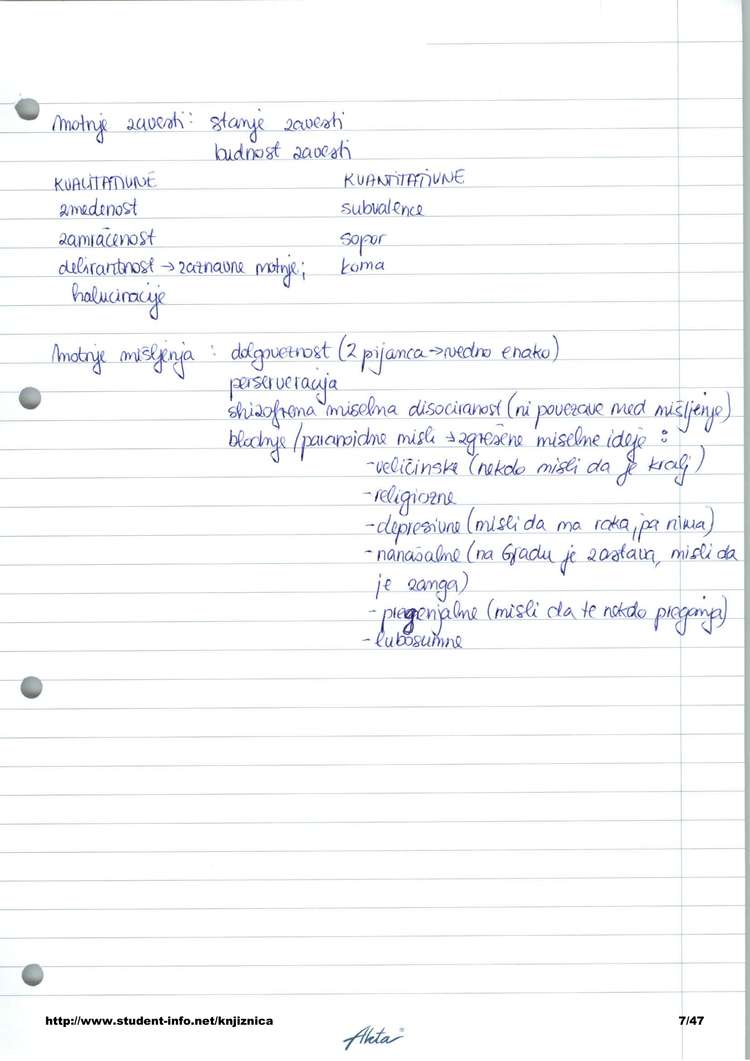 motnje zavesti: stanje zavesti
budnost zavesti
KVALITATIVNE KVANTITATIVNE
zmedenost subvalence
zamračenost sopor
delirantnost → zaznavne motnje; koma
halucinacije
motnje mišljenja : dolgoveznost (2 pijanca → vedno enako)
perserveracija
shizofrena miselna disociranost (ni povezave med mišljenje)
blodnje / paranoidne misli → zgrešene miselne ideje :
- veličinske (nekdo misli da je kralj)
- religiozne
- depresivne (misli da ma raka, pa nima)
- nanašalne (na Gradu je zastava, misli da
je zanga)
- pregenjalne (misli da te nekdo preganja)
- lubosumne
http://www.student-info.net/knjiznica 7/47
Akta